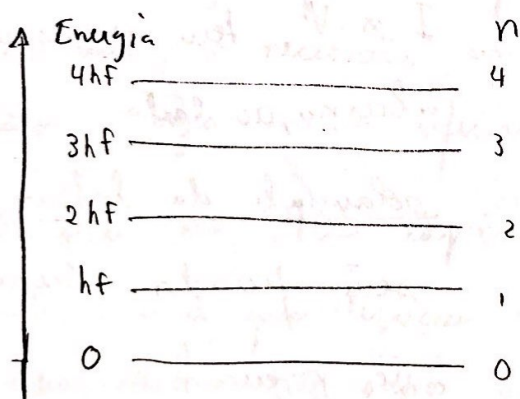 Energia n
4hf 4
3hf 3
2hf 2
hf 1
0 0